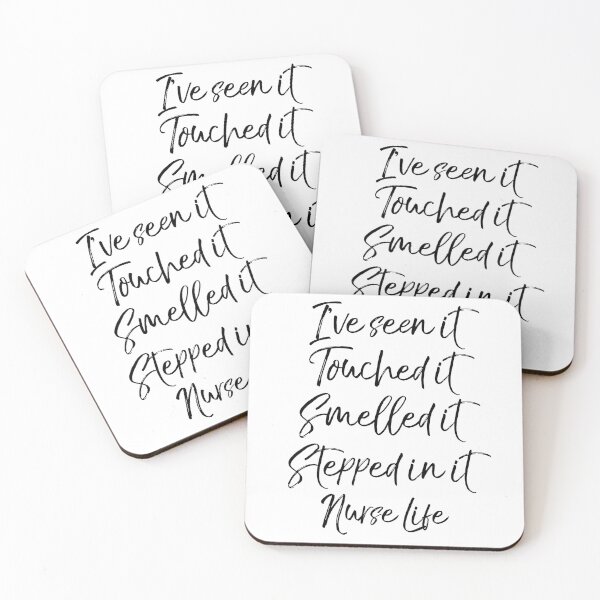 I've seen it
Touched it
Smelled it
in it
I've seen it
Touched it
Smelled it
Stepped in it
I've seen it
Touched it
Smelled it
Stepped in
Nurse
I've seen it
Touched it
Smelled it
Stepped in it
Nurse Life